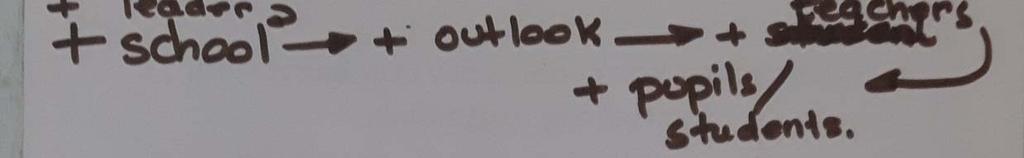 + leader
+ school → + outlook → + teachers
+ pupils/
students.